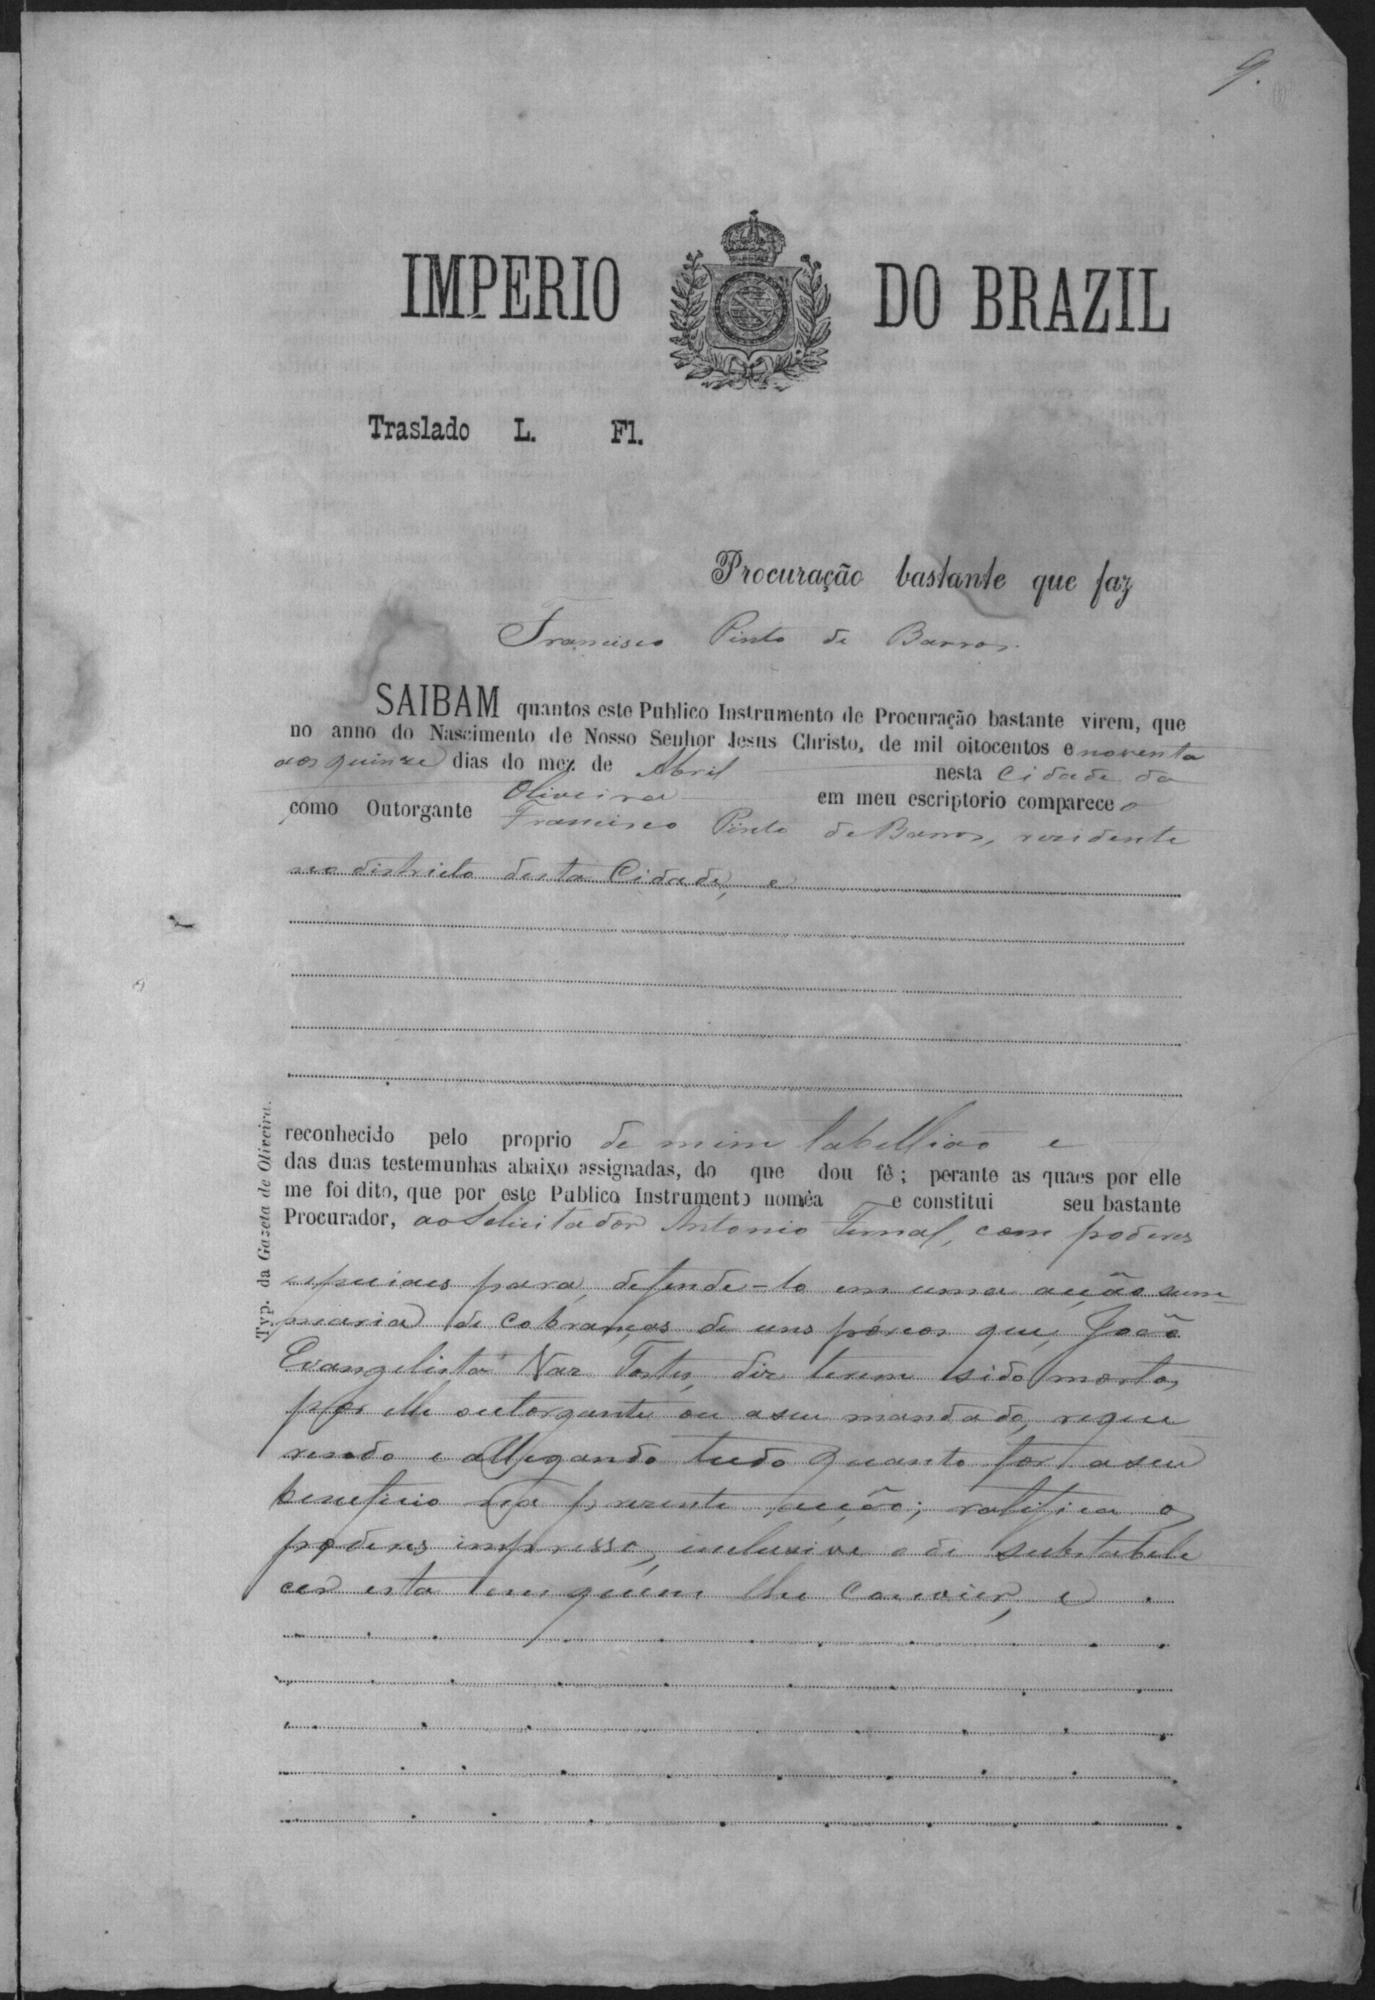 9.
IMPERIO DO BRAZIL
Traslado L. Fl.
Procuração bastante que faz
Francisco Pinto de Barros.
SAIBAM quantos este Publico Instrumento de Procuração bastante virem, que
no anno do Nascimento de Nosso Senhor Jesus Christo, de mil oitocentos e noventa
aos quinze dias do mez de Abril nesta Cidade da
Oliveira em meu escriptorio comparece o
como Outorgante Francisco Pinto de Barros, rezidente
no districto desta Cidade, e
reconhecido pelo proprio de mim tabellião e
das duas testemunhas abaixo assignadas, do que dou fé; perante as quaes por elle
me foi dito, que por este Publico Instrumento noméa e constitui seu bastante
Procurador, ao Solicitador Antonio , com poderes
especiaes para defende-lo em uma acção sum-
maria de cobranças de uns pórcos que, João
Evangelista Vaz Tostes, diz terem sido mortos,
por elle outorgante ou a seu mandado, reque
rendo e allegando tudo quanto for a seu
beneficio na prezente acção; ratifica os
poderes impressos, inclusive o de substabele
cer esta em quem lhe convier, e
Typ. da Gazeta de Oliveira.